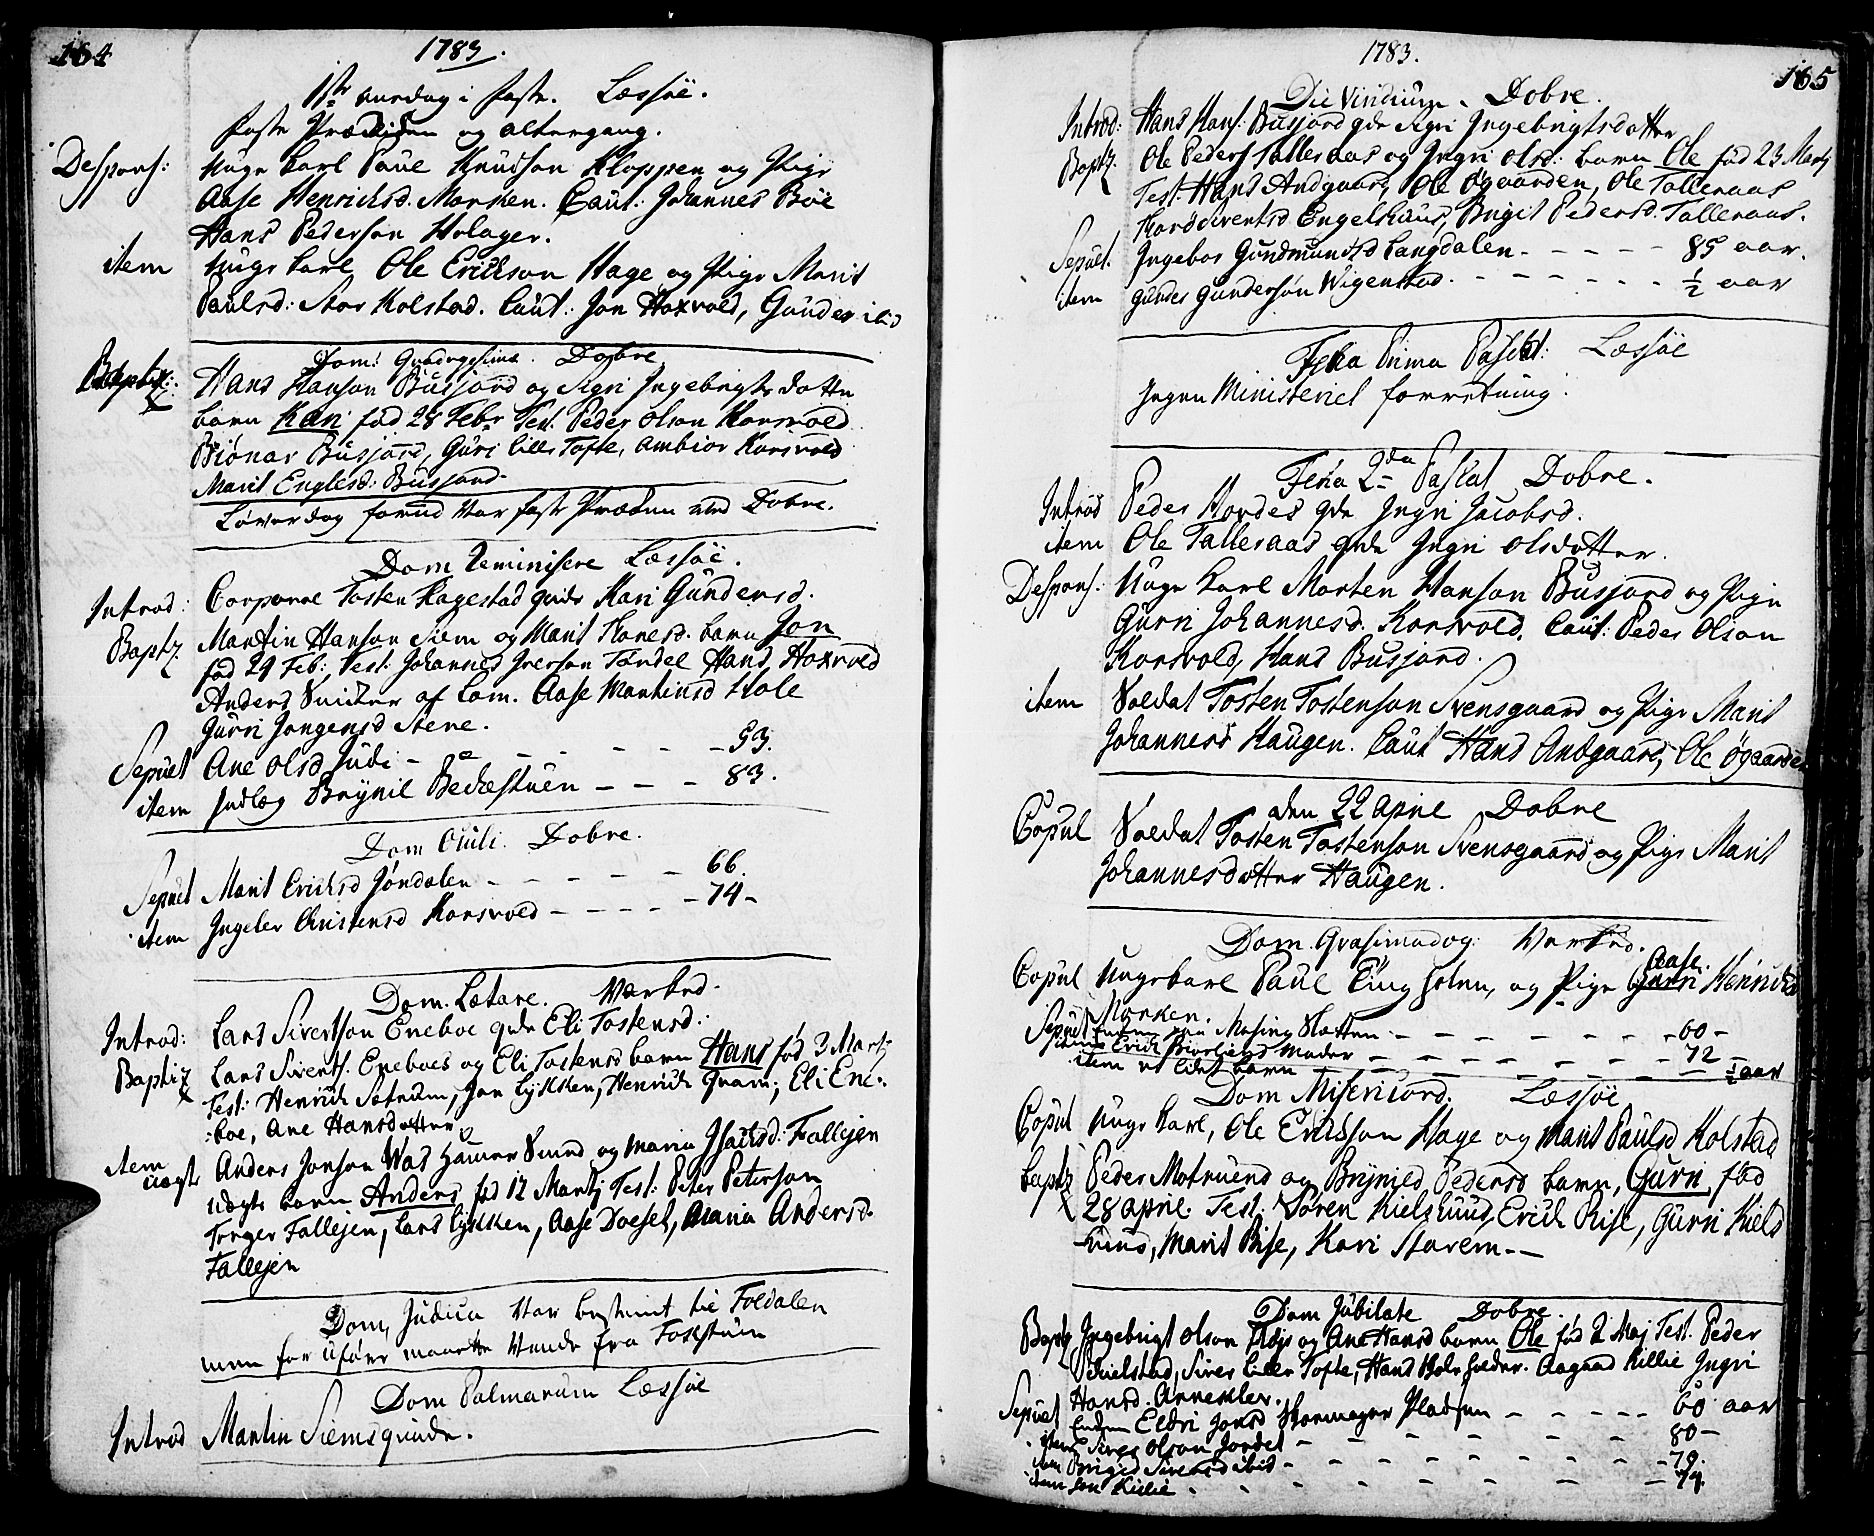 164
1783.
1ste onsdag i faste. Læssöe.
faste Prædiken og altergang.
Despons: unge karl Paul Knudson Kloppen og Pige
Aase Henrichsd. Morken. Caut: Johannes Böe
Hans Pederson Holager.
item unge karl Ole Erickson Hage og Pige Marit
Paulsd: Stor Kolstad. Caut: Jon Hoxvold, Gunder ibid
Dom: Quadragesima. Dobre
Baptiz: Hans Hanson Busjord og Sigri Ingebrigts dotter
barn Kari fød 28 Febr Test. Peder Olson Korsvold
Biönar Busjord, Guri lille Tofte, Ambior Korsvold
Marit Englesd: Busjord.
Löverdag forud var faste Prædiken ved Dobre.
Dom Reminisere Læssöe.
Introd: Corporal Tosten Hagestad qvide Kari Gundersd.
Baptz. Martin Hanson Siem og Marit Toresd. barn Jon
fød 24 Feb: Test. Johannes Iverson Tordel Hans Hoxvold
Anders Snicker af Lom. Aase Martinsd Hole
Gurri Jongensd Stene.
Sepult Ane Olsd Judi - - - - - 53.
item Indlæg Brynil Beckestuen - - - 83.
Dom Oculi. Dobre.
Sepult Marit Ericksd Jöndalen - - - - - 66.
item Ingeler Christensd Korsvold - - - - - 74-
Dom. Lætare. Warked.
Introd: Lars Sivertson Eneboe qvde Eli Tostensd.
Baptiz Lars Siverts. Eneboes og Eli Tostensd barn Hans fød 3 Marti
Test: Henrich Sætrum, Jon Lykken, Henrich Qvam, Eli Ene-
:boe, Ane Hansdotter
item uægte Anders Jonson Wos Hammer Smed og Maria Isachsd: Fallejen
uægte barn Anders fød 12 Martij Test: Peter Peterson
Torger Fallejen, Lars Lykken, Aase Doesel, Maria Andersd.
Fallejen
Dom, Judica Var bestemt til Foldalen
men for uföre maatte Vende fra Fockstuen
Dom Palmarum Læssöe
Introd Martin Siems qvinde.
165
1783.
Die Viridium. Dobre.
Introd: Hans Hans: Busjord qde Sigri Ingebrigtsdotter
Baptz. Ole Peders Talleraas og Ingri Olsd: barn Ole fød 23 Marty
Test. Hans Andgaard, Ole Øgaarden, Ole Talleraas
Tord Sivertsd Engelshuus, Brigit Pedersd. Talleraas.
Sepult. Ingebor Gundmundsd Langdalen - - - - - 85 aar.
item Gunder Gunderson Wigenstad. - - - - - - ½ aar
Feria Prima Paschat: Læssöe
Ingen Ministeriel forretning.
Feria 2da Paschat Dobre.
Introd Peder Hordes qde Ingri Jacobsd.
item Ole Talleraas qvde Ingri Olsdotter.
Despons: Unge karl Morten Hanson Busjord og Pige
Gurri Johannesd. Korsvold. Caut: Peder Olson
Korsvold, Hans Busjord.
item Soldat Tosten Tostenson Svensgaard og Pige Marit
Johannesd Haugen. Caut Hans Andgaard, Ole Øgaarden
den 22 April Dobre
Copul Soldat Tosten Tostenson Svensgaard og Pige Marit
Johannesdotter Haugen.
Dom. Qvasimodog: Warked.
Copul Ungekarl Paul Eingholm, og Pige Gurri Aase. Henrichsd
Morken.
Sepult Masing Slotten - - - - - 60-
item Erick moder - - - - - - - 72 -
item et lidet barn - - - - - ½ aar
Dom Misericord. Læssöe
Copul Unge karl, Ole Erickson Hage og Marit Paulsd Kolstad
baptz Peder Motruend og Brynild Pedersd barn, Gurri, fød
28 april. Test: Sören Kielshuus, Erick Rise, Gurri Kiels
huus, Marit Rise, Kari Storem.--
Dom Jubilate Dobre.
Baptz Ingebrigt Olson og Ane Hansd barn Ole fød 2 Maj Test. Peder
Kielstad, Siver lille Tofte, Hans Aagaad Killie Ingri
Hansd. Annexler.
Sepult Enken Eldri Jonsd Skomager Pladsen - - - - - 60 aar
item Siver Olson Jordet - - - - - - 80-
item Brigid Siversd ibid - - - - - - - 79.
item Jon Killie - - - - - - - 74.